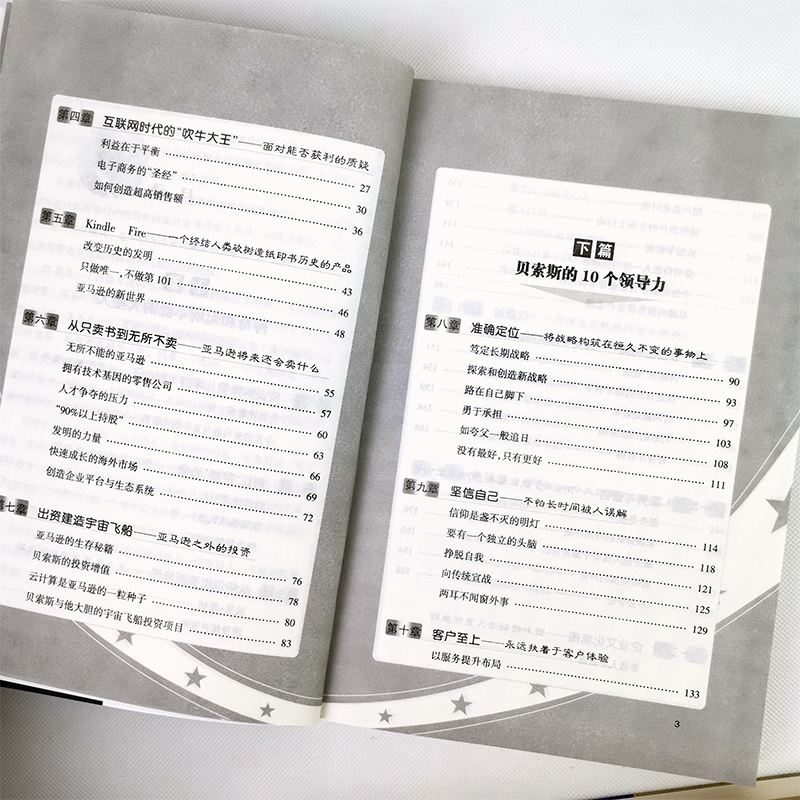 第四章 互联网时代的“吹牛大王”——面对能否获利的质疑
利益在于平衡 …… 27
电子商务的“圣经” …… 30
如何创造超高销售额 …… 36
第五章 Kindle Fire——一个终结人类砍树造纸印书历史的产品
改变历史的发明 …… 43
只做唯一,不做第 101 …… 46
亚马逊的新世界 …… 48
第六章 从只卖书到无所不卖——亚马逊将来还会卖什么
无所不能的亚马逊 …… 55
拥有技术基因的零售公司 …… 57
人才争夺的压力 …… 60
“90%以上持股” …… 63
发明的力量 …… 66
快速成长的海外市场 …… 69
创造企业平台与生态系统 …… 72
第七章 出资建造宇宙飞船——亚马逊之外的投资
亚马逊的生存秘籍 …… 76
贝索斯的投资增值 …… 78
云计算是亚马逊的一粒种子 …… 80
贝索斯与他大胆的宇宙飞船投资项目 …… 83
下篇
贝索斯的 10 个领导力
第八章 准确定位——将战略构筑在恒久不变的事物上
笃定长期战略 …… 90
探索和创造新战略 …… 93
路在自己脚下 …… 97
勇于承担 …… 103
如夸父一般追日 …… 108
没有最好,只有更好 …… 111
第九章 坚信自己——不怕长时间被人误解
信仰是盏不灭的明灯 …… 114
要有一个独立的头脑 …… 118
挣脱自我 …… 121
向传统宣战 …… 125
两耳不闻窗外事 …… 129
第十章 客户至上——永远执着于客户体验
以服务提升布局 …… 133
3